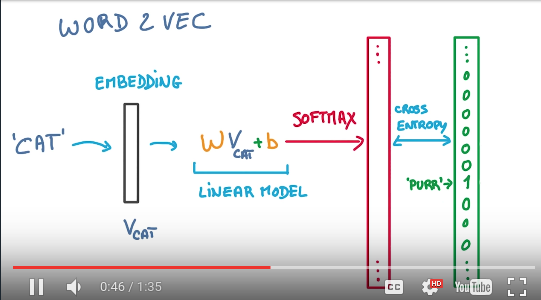 WORD 2 VEC
EMBEDDING
'CAT'
V_CAT
W V_CAT + b
LINEAR MODEL
SOFTMAX
CROSS
ENTROPY
'PURR'
0
0
0
0
0
0
1
0
0
0
0:46 / 1:35
CC
HD
YouTube